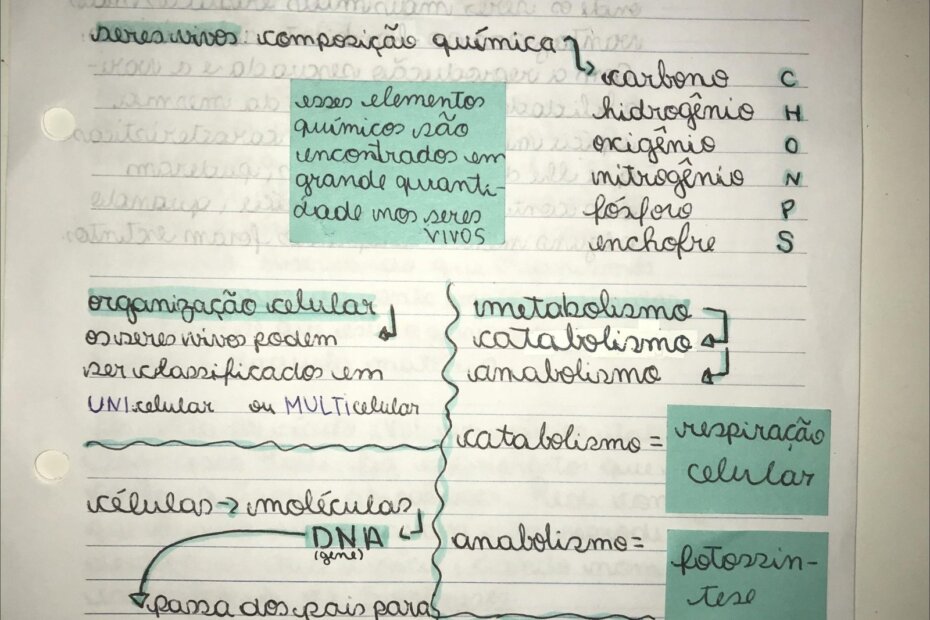 seres vivos composição química
carbono C
hidrogênio H
oxigênio O
nitrogênio N
fósforo P
enchofre S
esses elementos
químicos são
encontrados em
grande quanti-
dade nos seres
vivos
organização celular
os seres vivos podem
ser classificados em
UNIcelular ou MULTIcelular
células → moléculas
DNA
(gene)
passa dos pais para
metabolismo
catabolismo
anabolismo
catabolismo =
respiração
celular
anabolismo =
fotossín-
tese